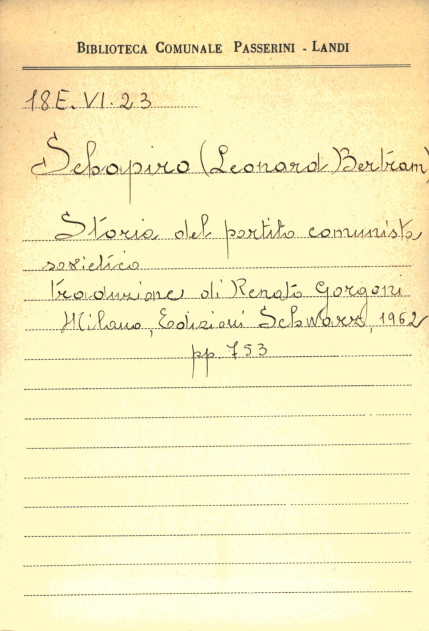 BIBLIOTECA COMUNALE PASSERINI - LANDI
18E. VI. 23
Schapiro (Leonard Bertram)
Storia del partito comunista
sovietico
traduzione di Renato Gorgoni
Milano, Edizioni Schwarz, 1962
pp. 753